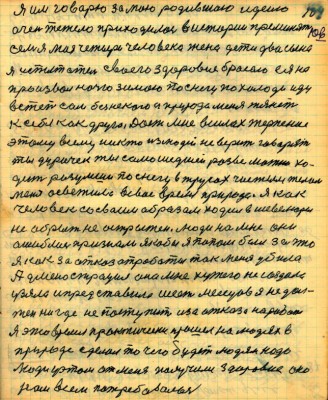 Я им говорю за мою родившаю идею
очен тежело приходилос в истории применят
семя моя четыри человека жена дети два сына
я испытател своего здоровие бросаю себя на
произвол ночю зимою по снегу по холоде иду
встет сам без некого а природа меня тянет
к себе как друга. Дает мне в силах терпение
этому всему никто из людей не верит говорят
ты дурачек ты самошедшей розве можно хо-
дит разумши по снегу в трусах честным телом
меня осветила в свае время природа. Я как
человек со своим образом ходил в шевелюри
не обрит не острижен. люди на мне они
ошиблис признали якобы я попом был за это
я как за отказ от работи так меня убила
Администрация она мне нужного не создала
взяла и представила шест месецов я не дол-
жен нигде не поступит из за отказа на работи
Я это время практически прошел на людях в
природе зделал то чего будет людям надо
Люди потом от меня получили здоровие оно
нам всем потребовалас